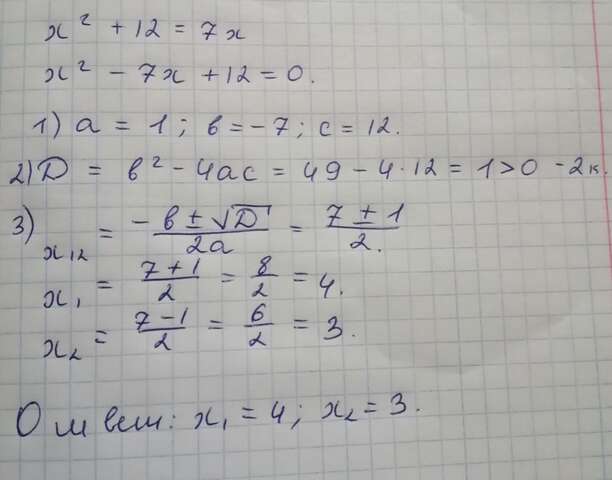 x² + 12 = 7x
x² - 7x + 12 = 0.
1) a = 1; в = -7; c = 12.
2) D = в² - 4ac = 49 - 4·12 = 1 > 0 - 2к.
3) x₁₂ = (-в ± √D)/2a = (7 ± 1)/2.
x₁ = (7 + 1)/2 = 8/2 = 4.
x₂ = (7 - 1)/2 = 6/2 = 3.
Ответ: x₁ = 4; x₂ = 3.